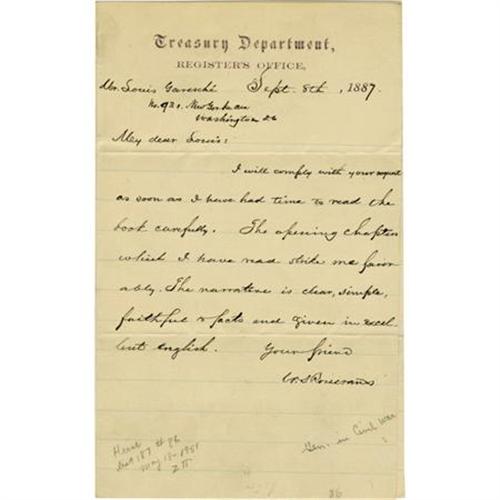 Treasury Department,
REGISTER'S OFFICE,
Mr. Louis Garesché Sept. 8th, 1887.
No. 920. New York Ave
Washington DC
My dear Louis:
I will comply with your request
as soon as I have had time to read the
book carefully. The opening chapters
which I have read strike me favor
ably. The narrative is clear, simple,
faithful to facts and given in excel
lent english. Your friend
W. S Rosecrans
Gen. in Civil War
Cat 187 # 86
May 18-1951
86